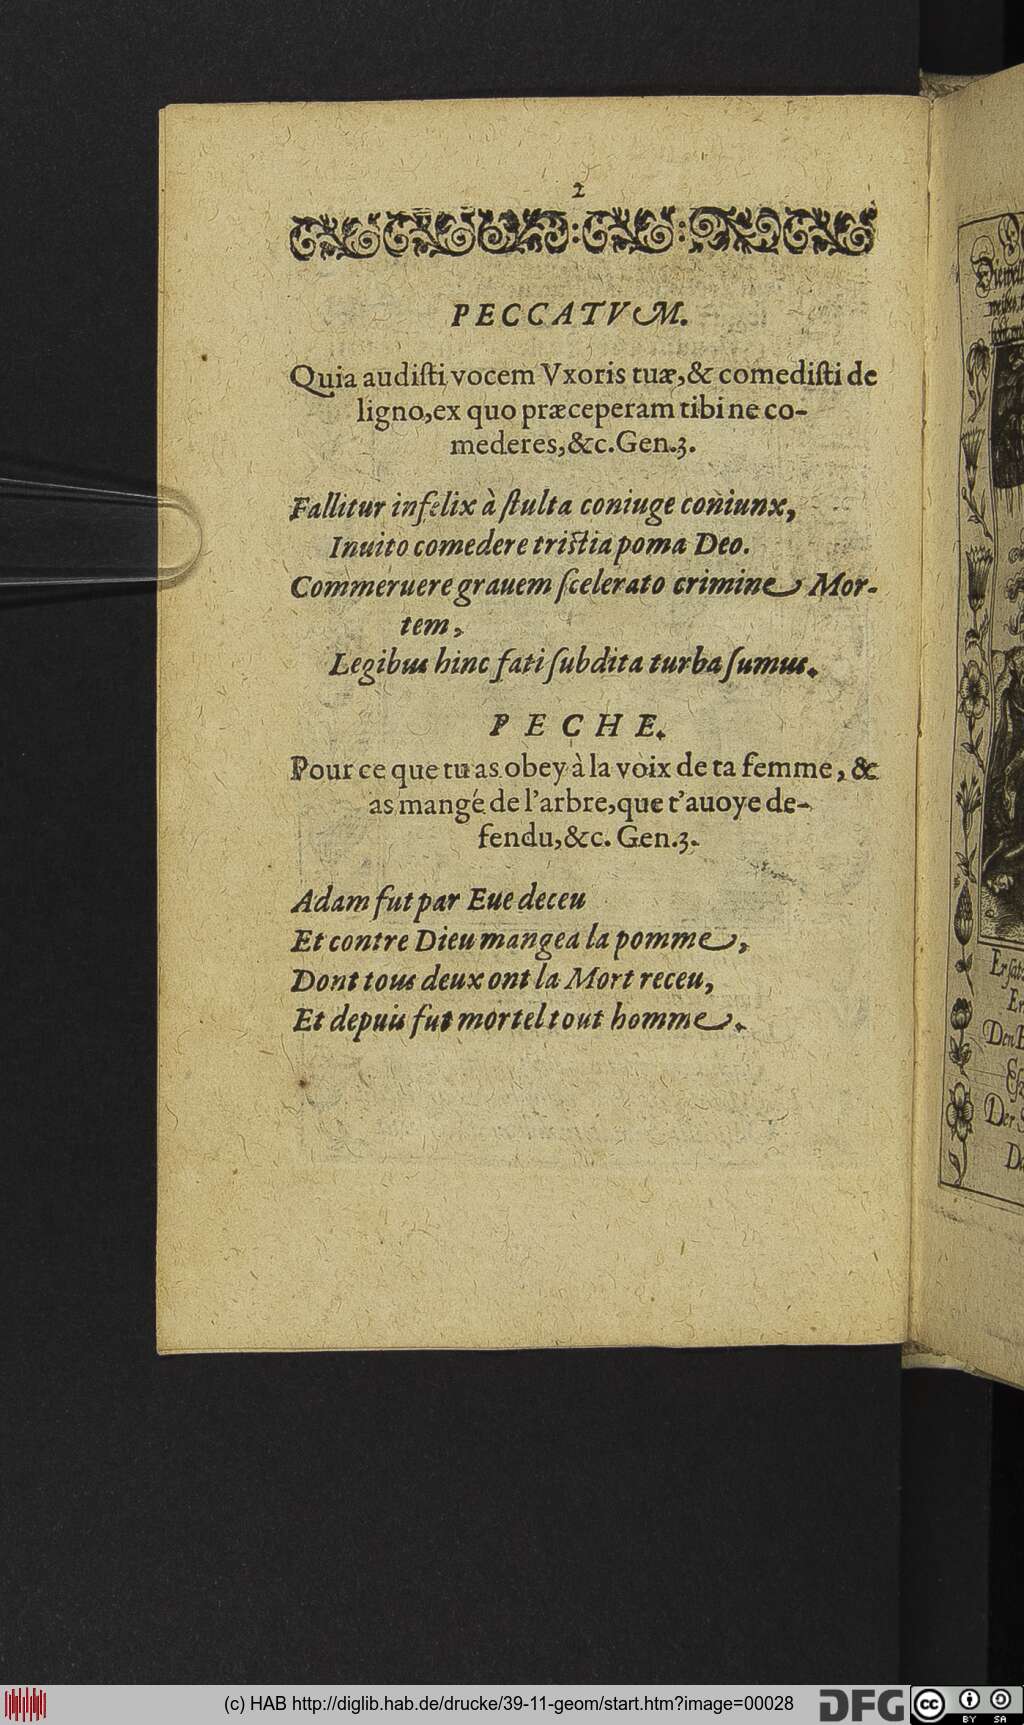 2
PECCATVM.
Quia audisti vocem Vxoris tuæ, & comedisti de
ligno, ex quo præceperam tibi ne co-
mederes, &c. Gen.3.
Fallitur infelix à stulta coniuge coniunx,
Inuito comedere tristia poma Deo.
Commeruere grauem scelerato crimine Mor-
tem,
Legibus hinc fati subdita turba sumus.
PECHE.
Pour ce que tu as obey à la voix de ta femme, &
as mangé de l'arbre, que t'auoye de-
fendu, &c. Gen.3.
Adam fut par Eue deceu
Et contre Dieu mangea la pomme,
Dont tous deux ont la Mort receu,
Et depuis fut mortel tout homme.
Er
Der
(c) HAB http://diglib.hab.de/drucke/39-11-geom/start.htm?image=00028
DFG
cc
BY SA